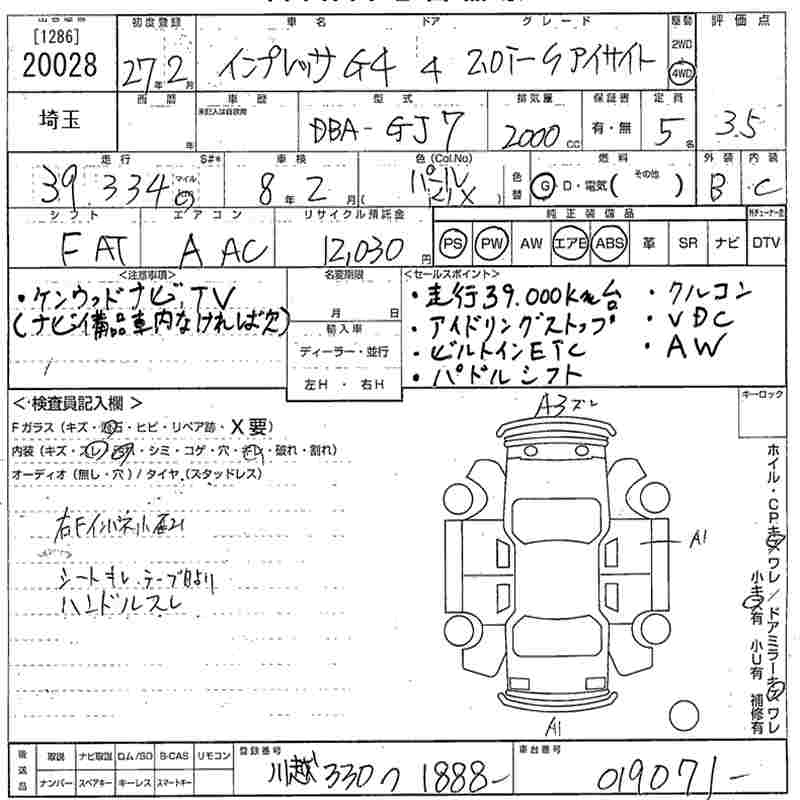 [1286]
20028
初度登録
27年2月
車名 ドア グレード
インプレッサG4 4 2.0i-Sアイサイト
駆動
2WD
4WD
評価点
3.5
埼玉
西暦
年
車歴
未記入は自家用
型式
DBA-GJ7
排気量
2000cc
保証書
有・無
定員
5名
走行 S#*
39,334 マイル km
車検
8年2月
色(Col.No)
パール
K1X
色替
燃料
G・D・電気( その他 )
外装
B
内装
C
シフト
FAT
エアコン
AAC
リサイクル預託金
12,030円
純正装備品
PS PW AW エアB ABS 革 SR ナビ DTV
<注意事項>
・ケンウッドナビ,TV
(ナビ備品車内なければ欠)
名変期限
月 日
輸入車
ディーラー・並行
左H・右H
<セールスポイント>
・走行39.000km台
・アイドリングストップ
・ビルトインETC
・パドルシフト
・クルコン
・VDC
・AW
<検査員記入欄>
Fガラス(キズ・飛石・ヒビ・リペア跡・X要)
内装(キズ・スレ・汚れ・シミ・コゲ・穴・キレ・破れ・割れ)
オーディオ(無し・穴)/タイヤ(スタッドレス)
右Fインパネ小
シートキレ テープ
ハンドルスレ
キーロック
A3ズレ
A1
A1
ホイル・CPキズワレ/ドアミラーキズワレ
小キズ有 小U有 補修有
後送品
取説 ナビ取説 ロム/SD B-CAS リモコン
ナンバー スペアキー キーレス スマートキー
登録番号
川越330つ1888-
車台番号
019071-